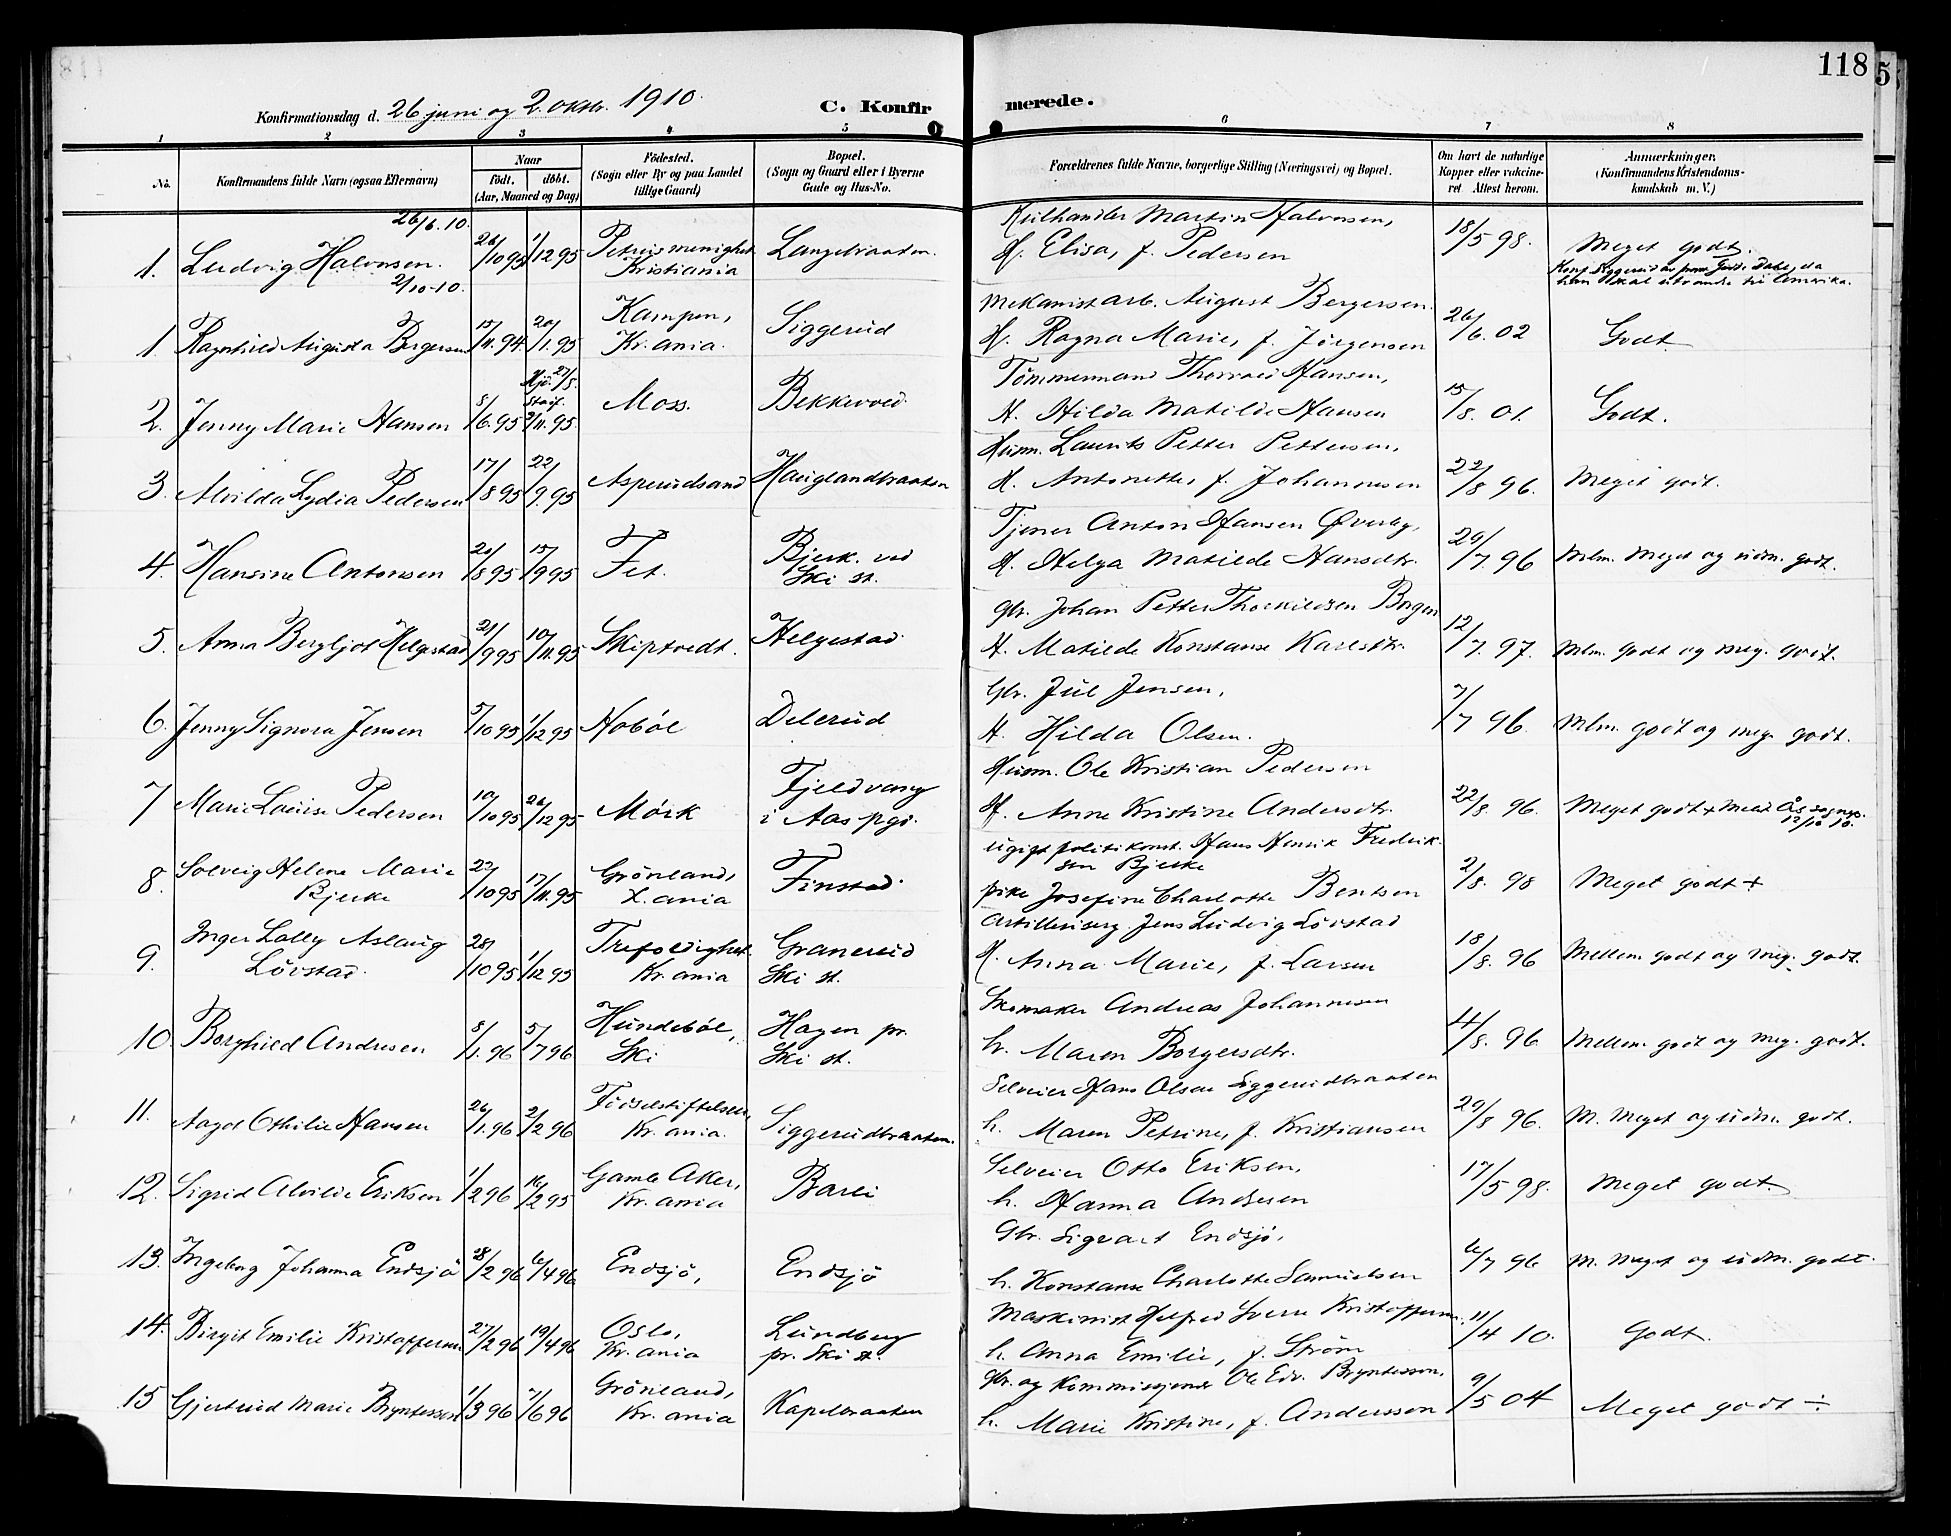 118
5
Konfirmationsdag d. 26 juni og 2. oktr. 1910.
C. Konfirmerede.
1 2 3 4 5 6 7 8
No.
Konfirmandens fulde Navn (ogsaa Efternavn)
Naar
födt. döbt.
(Aar, Maaned og Dag)
Födested.
(Sogn eller By og paa Landet
tillige Gaard)
Bopæl.
(Sogn og Gaard eller i Byerne
Gade og Hus-No.
Forældrenes fulde Navne, borgerlige Stilling (Næringsvei) og Bopæl.
Om havt de naturlige
Kopper eller vakcine-
ret Attest herom.
Anmærkninger.
(Konfirmandens Kristendoms-
kundskab m. V.)
26/6. 10.
1. Ludvig Halvorsen. 26/10 95 1/12 95 Petrus menighet Kristiania Langebraaten.
Martin Halvorsen,
H. Elisa, f. Pedersen 18/5 98. Meget godt.
2/10-10.
1. Ragnhild Augusta Bergersen 15/11. 94. 20/1. 95 Kampen, Kr.ania. Siggerud
Mekanistarb. August Bergersen.
H. Ragna Marie, f. Jörgensen 26/6. 02 Godt
2. Jenny Marie Hansen 8/6. 95 3/11. 95. Moss. Bekkevold
Tömmermand Thorvald Hansen,
H. Hilda Matilde Hansen 15/8. 01. Godt.
3. Alvilda Lydia Pedersen 17/8 95 22/9. 95 Asperudsand Hauglandbraaten
Husm. Laurits Petter Pettersen,
H. Antonette, f. Johannesen 22/8 96. Meget godt.
4. Hansine Antonsen 20/8 95 15/9 95 Fet. Bjerk. ved Ski st.
Tjener Anton Hansen Øverby,
H. Helga Matilde Hansdtr. 29/7. 96 Mlm. Meget og udm. godt.
5. Anna Bergljot Helgestad 21/9 95 10/11. 95 Skiptvedt. Helgestad
Gbr. Johan Petter Thorkildsen Borgen
H. Matilde Konstanse Karlsdtr. 12/7. 97. Mlm. godt og meg. godt.
6. Jenny Signora Jensen 5/10 95 1/12 95 Hobôl Delerud
Gbr. Jul Jensen,
H. Hilda Olsen. 7/7 96. Mlm. godt og meg. godt.
7 Marie Louise Pedersen 10/10 95 26/12 95 Mörk Fjeldvang i Aas pgd.
Husm. Ole Kristian Pedersen
H. Anne Kristine Andersdtr. 22/8. 96. Meget godt +
8. Solveig Helene Marie Bjerke 22/10 95 17/11. 95 Grönland, K.ania Finstad.
ugift politikonst. Hans Henrik Fredrik-
sen Bjerke
pike Josefine Charlotte Bentsen 2/8. 98 Meget godt +
9. Inger Lally Aslaug Lövstad. 28/10 95 1/12 95 Trefoldighet. Kr.ania Granerud Ski st.
Jens Ludvig Lövstad
H. Anna Marie, f. Larsen 18/8. 96 Mellem godt og meg. godt.
10. Borghild Andresen 8/1. 96 5/7 96 Hundeböl, Ski Hagen pr. Ski st.
Skomaker Andreas Johannesen
h. Maren Borgersdtr. 4/8. 96 Mellem. godt og meg. godt.
11. Aagot Othilie Hansen 26/1. 96 2/2 96 Födselstiftelsen, Kr.ania. Siggerudbraaten.
Selveier Hans Olsen Siggerudbraaten
h. Maren Petrine, f. Kristiansen 29/8 96. M. Meget og udm. godt.
12. Sigrid Alvilde Eriksen 1/2 96 16/2 95 Gamle Aker, Kr.ania Barli
Selveier Otto Eriksen,
h. Hanna Andresen 17/5 98. Meget godt.
13. Ingeborg Johanna Endsjö 28/2 96 6/4 96 Endsjö, Endsjö
Gbr. Sigvart Endsjö,
h. Konstanse Charlotte Samuelsen 6/7 96 M. Meget og udm. godt.
14. Birgit Emilie Kristoffersen 27/2 96 19/4 96 Oslo, Kr.ania Lundberg pr. Ski st.
Maskinist Helfred Sverre Kristoffersen.
h. Anna Emilie, f. Ström 11/4 10. Godt.
15 Gjertrud Marie Bryntesson 1/3 96 7/6 96 Grönland, Kr.ania Kapelbraaten
Gbr. og Kommisjonær Ole Edv. Bryntesson,
h. Marie Kristine, f. Andersson 9/5 04 Meget godt ÷